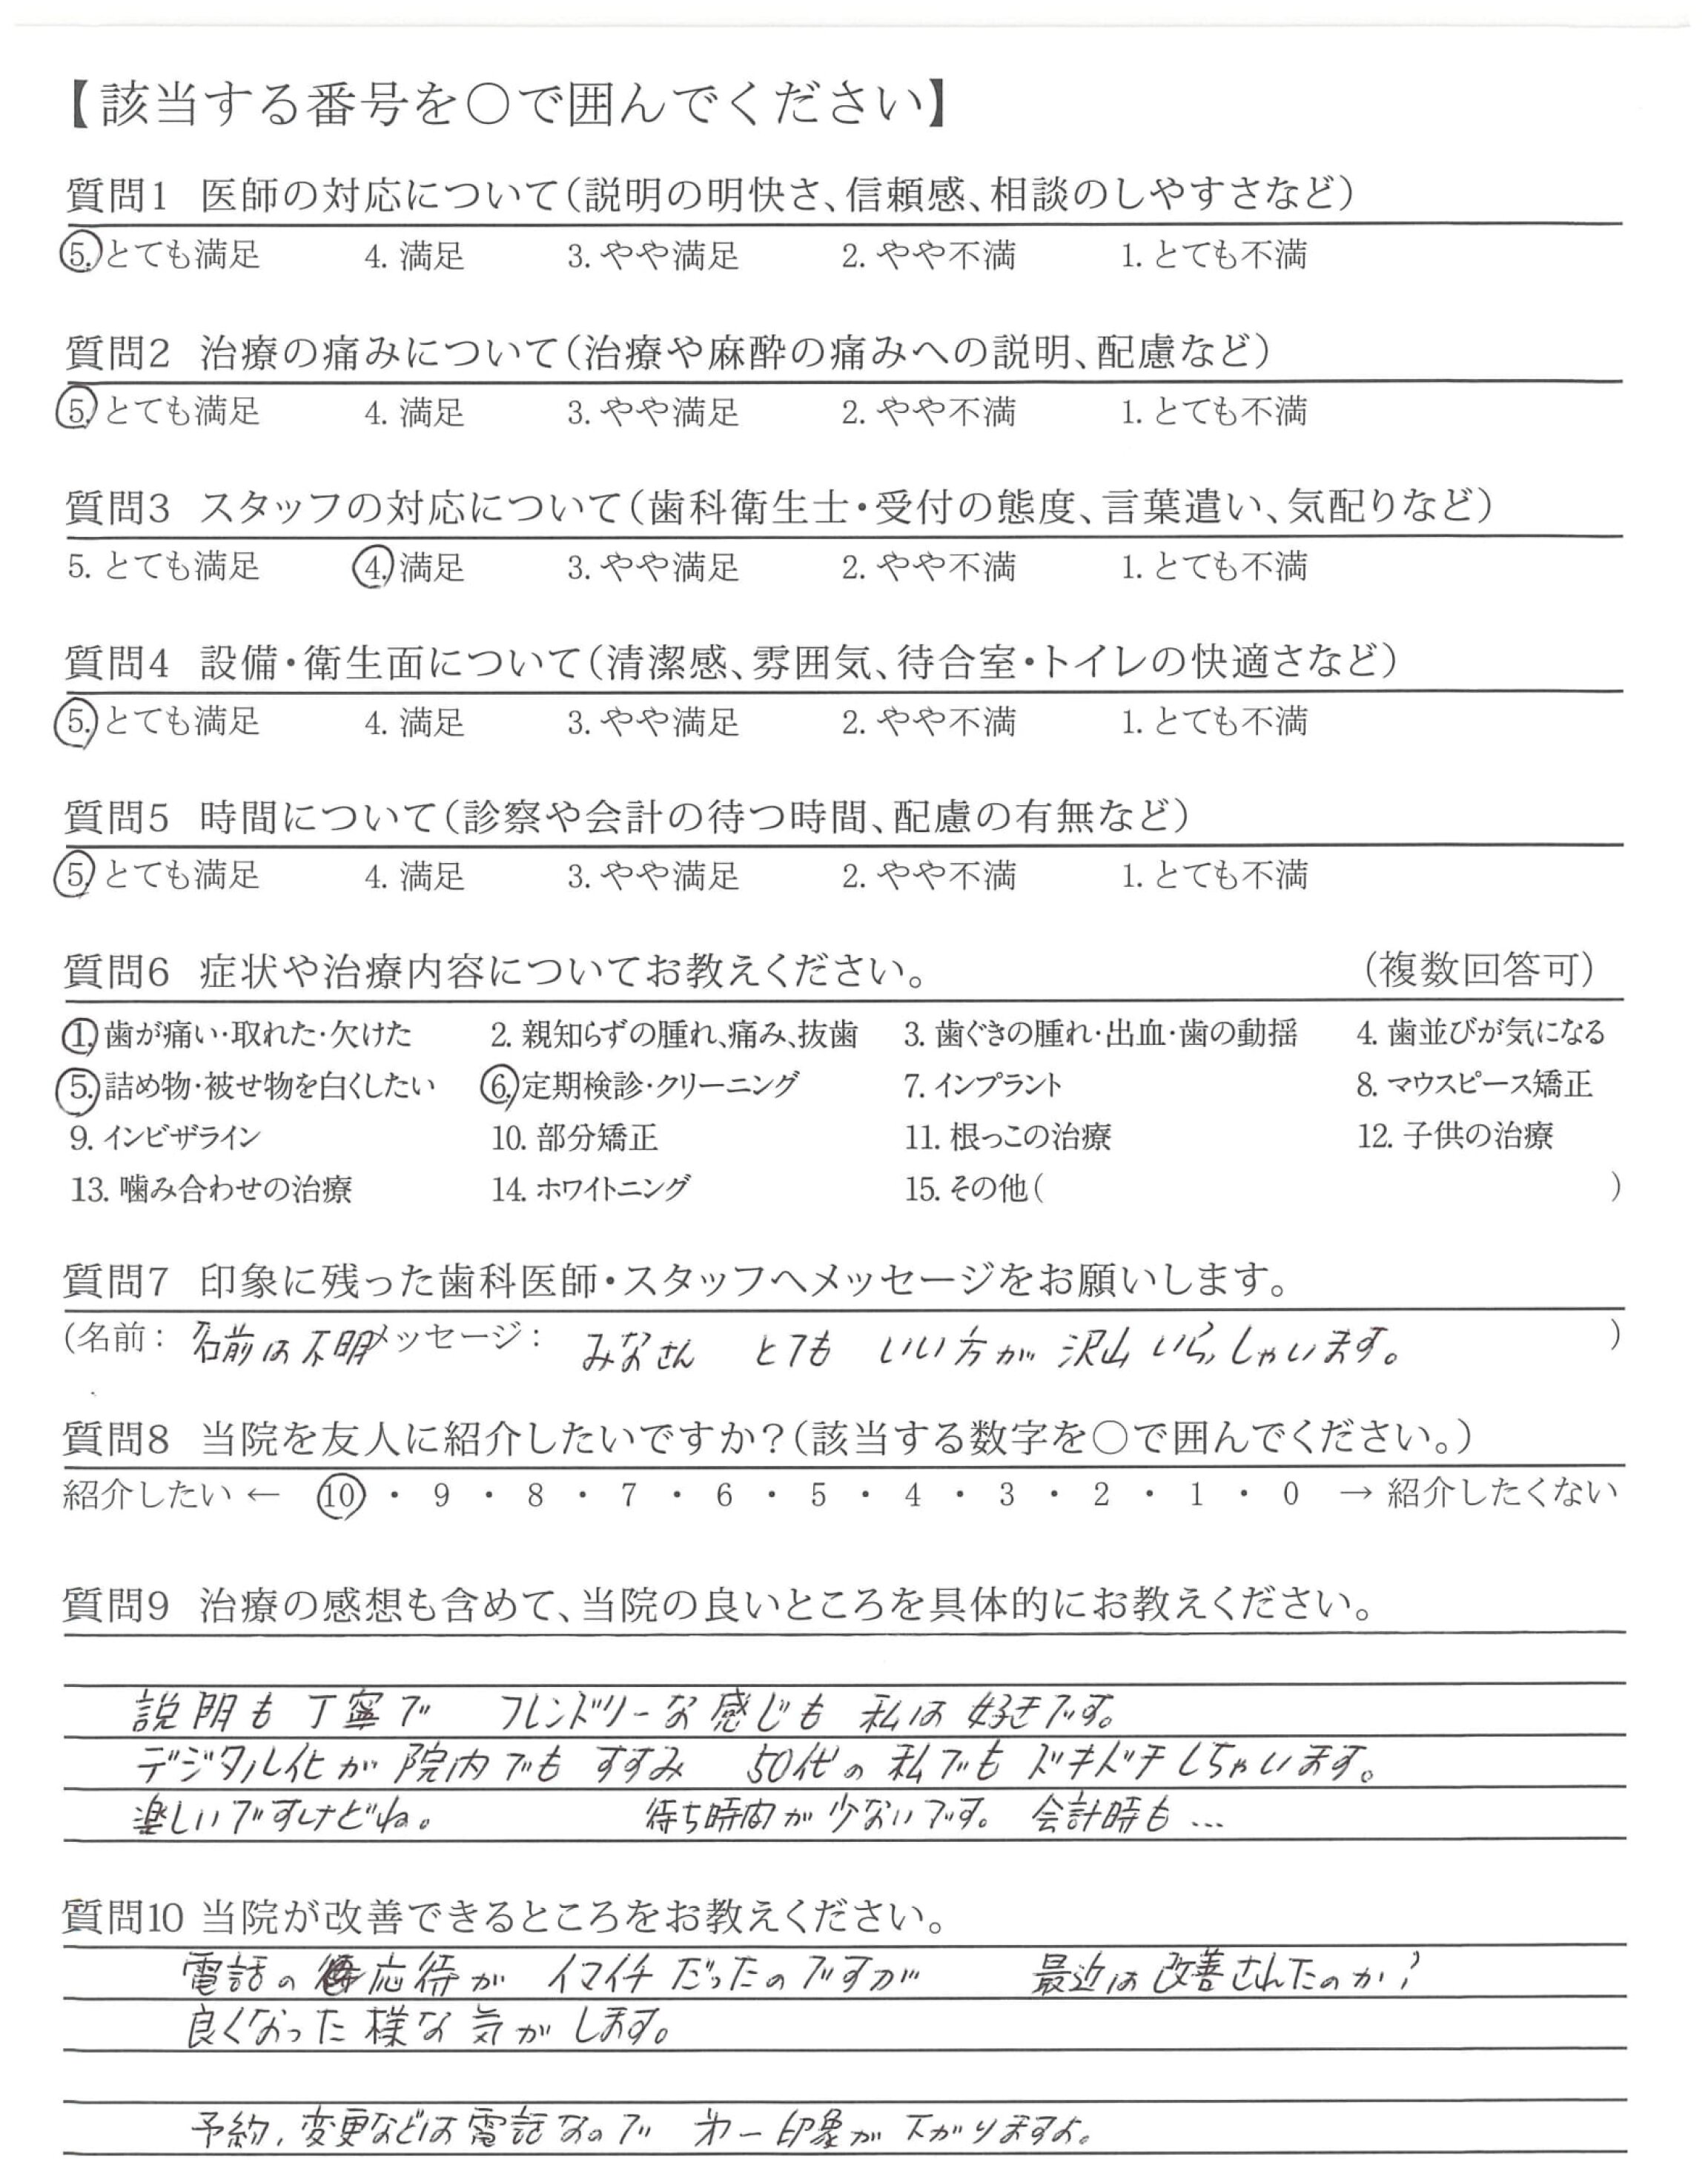 【該当する番号を○で囲んでください】
質問1 医師の対応について(説明の明快さ、信頼感、相談のしやすさなど)
5. とても満足 4. 満足 3. やや満足 2. やや不満 1. とても不満
質問2 治療の痛みについて(治療や麻酔の痛みへの説明、配慮など)
5. とても満足 4. 満足 3. やや満足 2. やや不満 1. とても不満
質問3 スタッフの対応について(歯科衛生士・受付の態度、言葉遣い、気配りなど)
5. とても満足 4. 満足 3. やや満足 2. やや不満 1. とても不満
質問4 設備・衛生面について(清潔感、雰囲気、待合室・トイレの快適さなど)
5. とても満足 4. 満足 3. やや満足 2. やや不満 1. とても不満
質問5 時間について(診察や会計の待つ時間、配慮の有無など)
5. とても満足 4. 満足 3. やや満足 2. やや不満 1. とても不満
質問6 症状や治療内容についてお教えください。 (複数回答可)
1. 歯が痛い・取れた・欠けた 2. 親知らずの腫れ、痛み、抜歯 3. 歯ぐきの腫れ・出血・歯の動揺 4. 歯並びが気になる
5. 詰め物・被せ物を白くしたい 6. 定期検診・クリーニング 7. インプラント 8. マウスピース矯正
9. インビザライン 10. 部分矯正 11. 根っこの治療 12. 子供の治療
13. 噛み合わせの治療 14. ホワイトニング 15. その他( )
質問7 印象に残った歯科医師・スタッフへメッセージをお願いします。
(名前: 名前は不明 メッセージ: みなさん とても いい方が 沢山 いらっしゃいます。 )
質問8 当院を友人に紹介したいですか?(該当する数字を○で囲んでください。)
紹介したい ← 10 ・ 9 ・ 8 ・ 7 ・ 6 ・ 5 ・ 4 ・ 3 ・ 2 ・ 1 ・ 0 → 紹介したくない
質問9 治療の感想も含めて、当院の良いところを具体的にお教えください。
説明も丁寧で フレンドリーな感じも 私は 好きです。
デジタル化が 院内でも すすみ 50代の 私でも ドキドキしちゃいます。
楽しいですけどね。 待ち時間が少ないです。 会計時も…
質問10 当院が改善できるところをお教えください。
電話の 応待が イマイチだったのですが 最近は改善されたのか?
良くなった様な気がします。
予約、変更などは電話なので 第一印象が 下がりますよ。